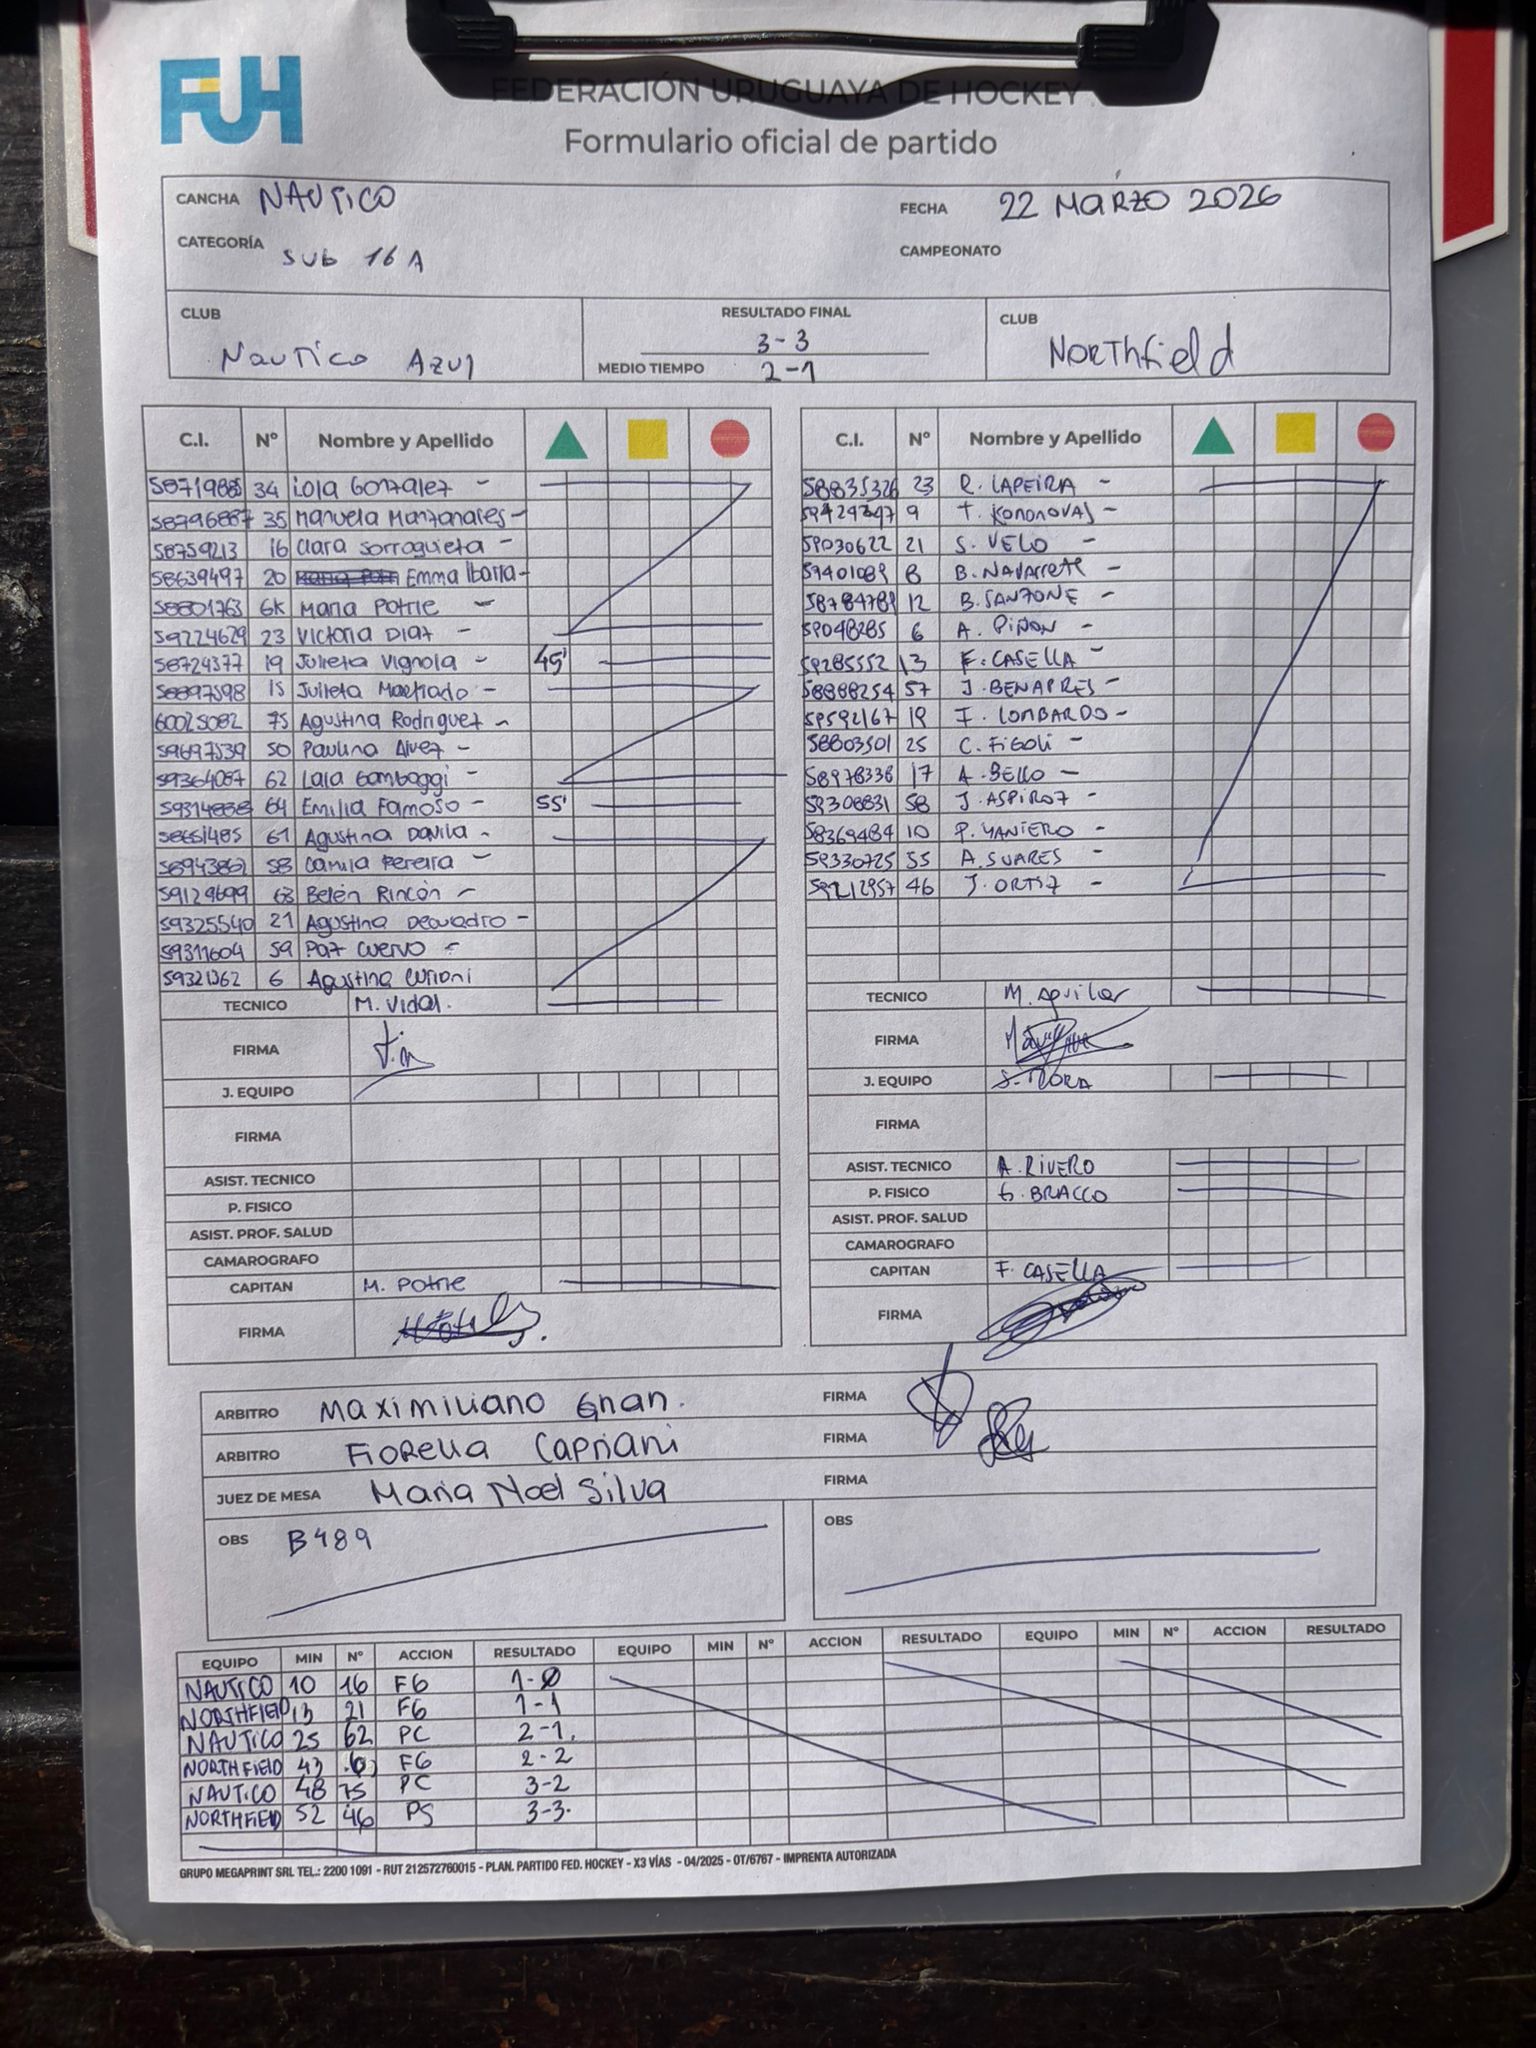 FUH
FEDERACIÓN URUGUAYA DE HOCKEY
Formulario oficial de partido
CANCHA NAUTICO FECHA 22 MARZO 2026
CATEGORÍA SUB 16 A CAMPEONATO
CLUB Nautico Azul RESULTADO FINAL 3-3 CLUB NORThfield
MEDIO TIEMPO 2-1
C.I. Nº Nombre y Apellido
34 Lola Gonzalez -
35 Manuela Manzanares -
58759213 16 Clara Sorragueta -
58639497 20 Emma Ibarra -
58801763 GK Maria Potrie -
59224629 23 Victoria Diaz -
58724377 19 Julieta Vignola - 45'
15 Julieta Machado -
60025082 75 Agustina Rodriguez -
59697539 50 Paulina Alvez -
59364087 62 Lara Gambaggi -
64 Emilia Famoso - 55'
58651485 61 Agustina Davila -
58 Camila Pereira -
59129699 63 Belén Rincón -
59325540 21 Agustina Decuadro -
59311604 59 Paz Cuervo -
6 Agustina Curioni
TECNICO M. Vidal.
FIRMA
J. EQUIPO
FIRMA
ASIST. TECNICO
P. FISICO
ASIST. PROF. SALUD
CAMAROGRAFO
CAPITAN M. Potrie
FIRMA
C.I. Nº Nombre y Apellido
58835326 23 R. LAPEIRA -
9 T. KONONOVAS -
59030622 21 S. VELO -
59401089 8 B. NAVARRETE -
58784781 12 B. SANZONE -
59048285 6 A. PIÑON -
59285552 13 F. CASELLA -
58888254 57 J. BENAPRES -
59592167 19 F. LOMBARDO -
58803501 25 C. FIGOLI -
58978338 17 A. BELLO -
59308831 58 J. ASPIROZ -
58369484 10 P. YANIERO -
59330725 55 A. SUARES -
59212957 46 J. ORTIZ -
TECNICO M. Aguilar
FIRMA
J. EQUIPO S. MORA
FIRMA
ASIST. TECNICO A. RIVERO
P. FISICO G. BRACCO
ASIST. PROF. SALUD
CAMAROGRAFO
CAPITAN F. CASELLA
FIRMA
ARBITRO Maximiliano Gnan. FIRMA
ARBITRO Fiorella Capriani FIRMA
JUEZ DE MESA Maria Noel Silva FIRMA
OBS B489 OBS
EQUIPO MIN Nº ACCION RESULTADO EQUIPO MIN Nº ACCION RESULTADO EQUIPO MIN Nº ACCION RESULTADO
NAUTICO 10 16 FG 1-0
NORTHFIELD 13 21 FG 1-1
NAUTICO 25 62 PC 2-1.
NORTHFIELD 43 FG 2-2
NAUTICO 48 75 PC 3-2
NORTHFIELD 52 46 PS 3-3.
GRUPO MEGAPRINT SRL TEL.: 2200 1091 - RUT 212572760015 - PLAN. PARTIDO FED. HOCKEY - X3 VÍAS - 04/2025 - OT/6767 - IMPRENTA AUTORIZADA